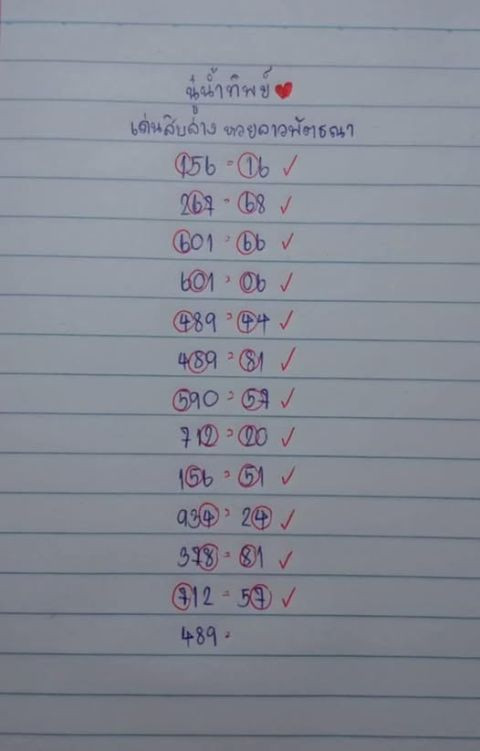 นู๋น้ำทิพย์
เด่นสิบล่าง หวยลาวพัฒธณา
156 = 16 ✓
267 = 68 ✓
601 = 66 ✓
601 = 06 ✓
489 = 44 ✓
489 = 81 ✓
590 = 57 ✓
712 = 20 ✓
156 = 51 ✓
934 = 24 ✓
378 = 81 ✓
712 = 57 ✓
489 =